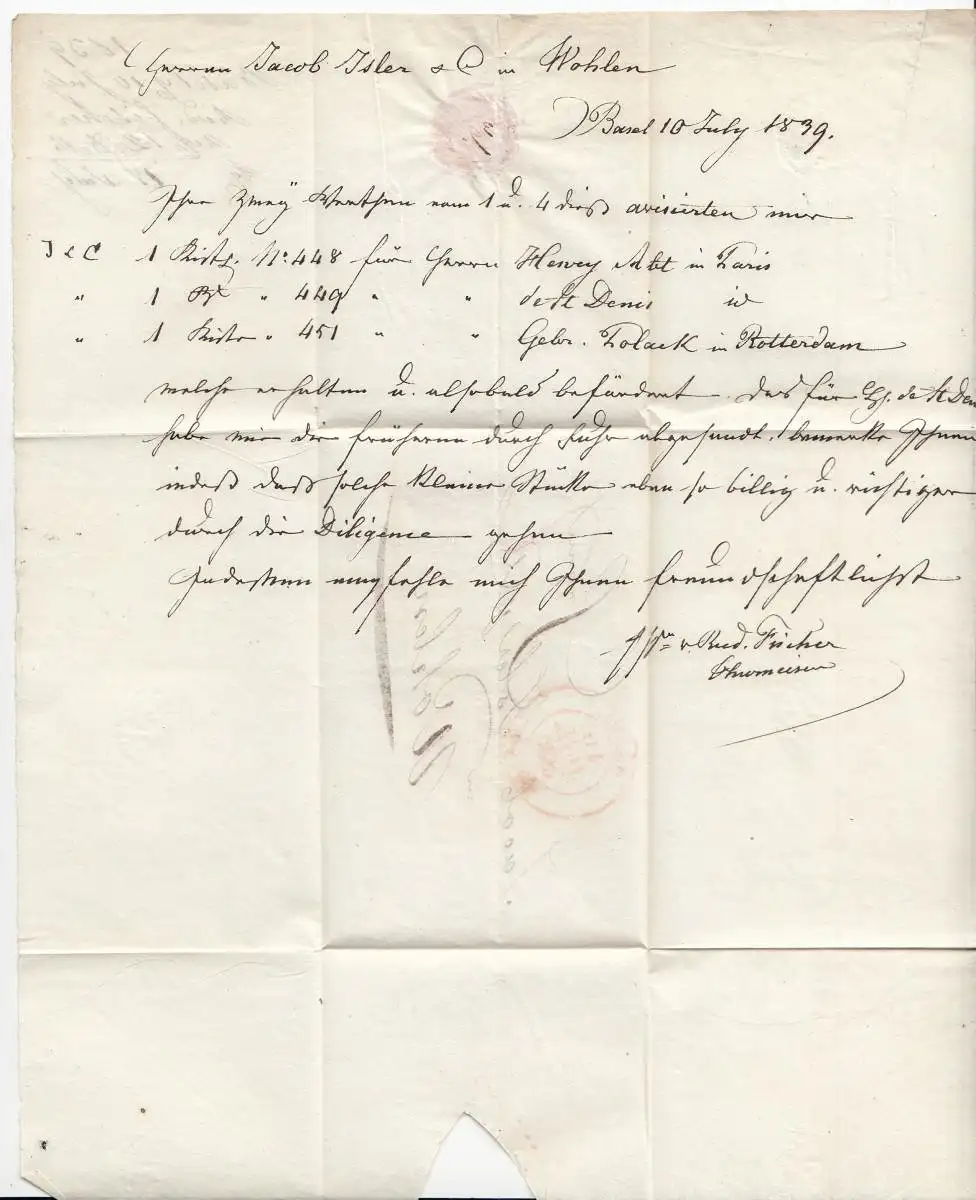 Herren Jacob Isler & C in Wohlen
Basel 10 July 1839.
Ihre zwey Werthen vom 1 u. 4 dieß avisierten mir
I & C 1 Kistl. No. 448 für Herrn Henry Abt in Paris
" 1 " 449 " " de St Denis id
" 1 Kiste " 451 " " Gebr. Polack in Rotterdam
welche erhalten u. alsobald befördert. Das für H. de St Den
habe wie die früheren durch Fuhr abgesandt, bemerke Ihnen
indeß daß solche kleine Stücke eben so billig u. richtiger
durch die Diligence gehen
Indessen empfehle mich Ihnen freundschaftlichst
v. Rud. Fischer